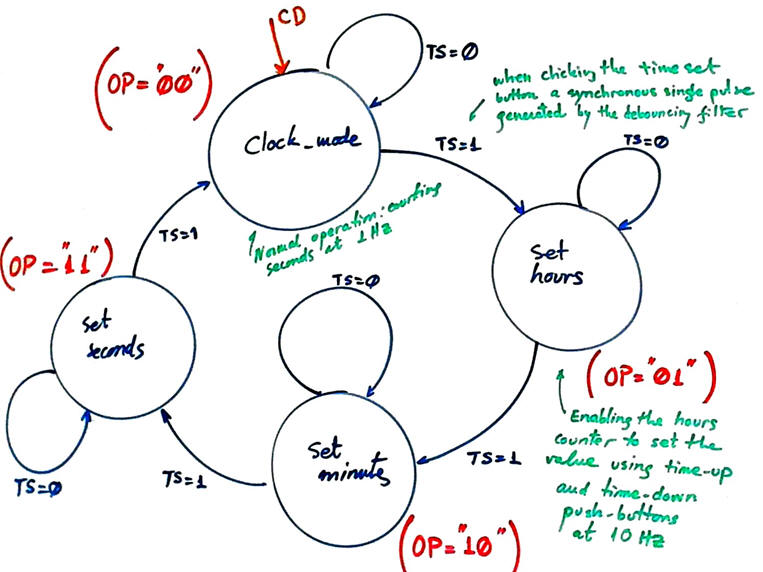 CD
(OP="00")
TS=0
Clock_mode
when clicking the time set
button a synchronous single pulse
generated by the debouncing filter
TS=1
TS=0
Normal operation: counting
seconds at 1 Hz
TS=1
(OP="11")
set
hours
TS=0
set
seconds
(OP="01")
Enabling the hours
counter to set the
value using time-up
and time-down
push-buttons
at 10 Hz
TS=1
set
minutes
TS=1
TS=0
(OP="10")